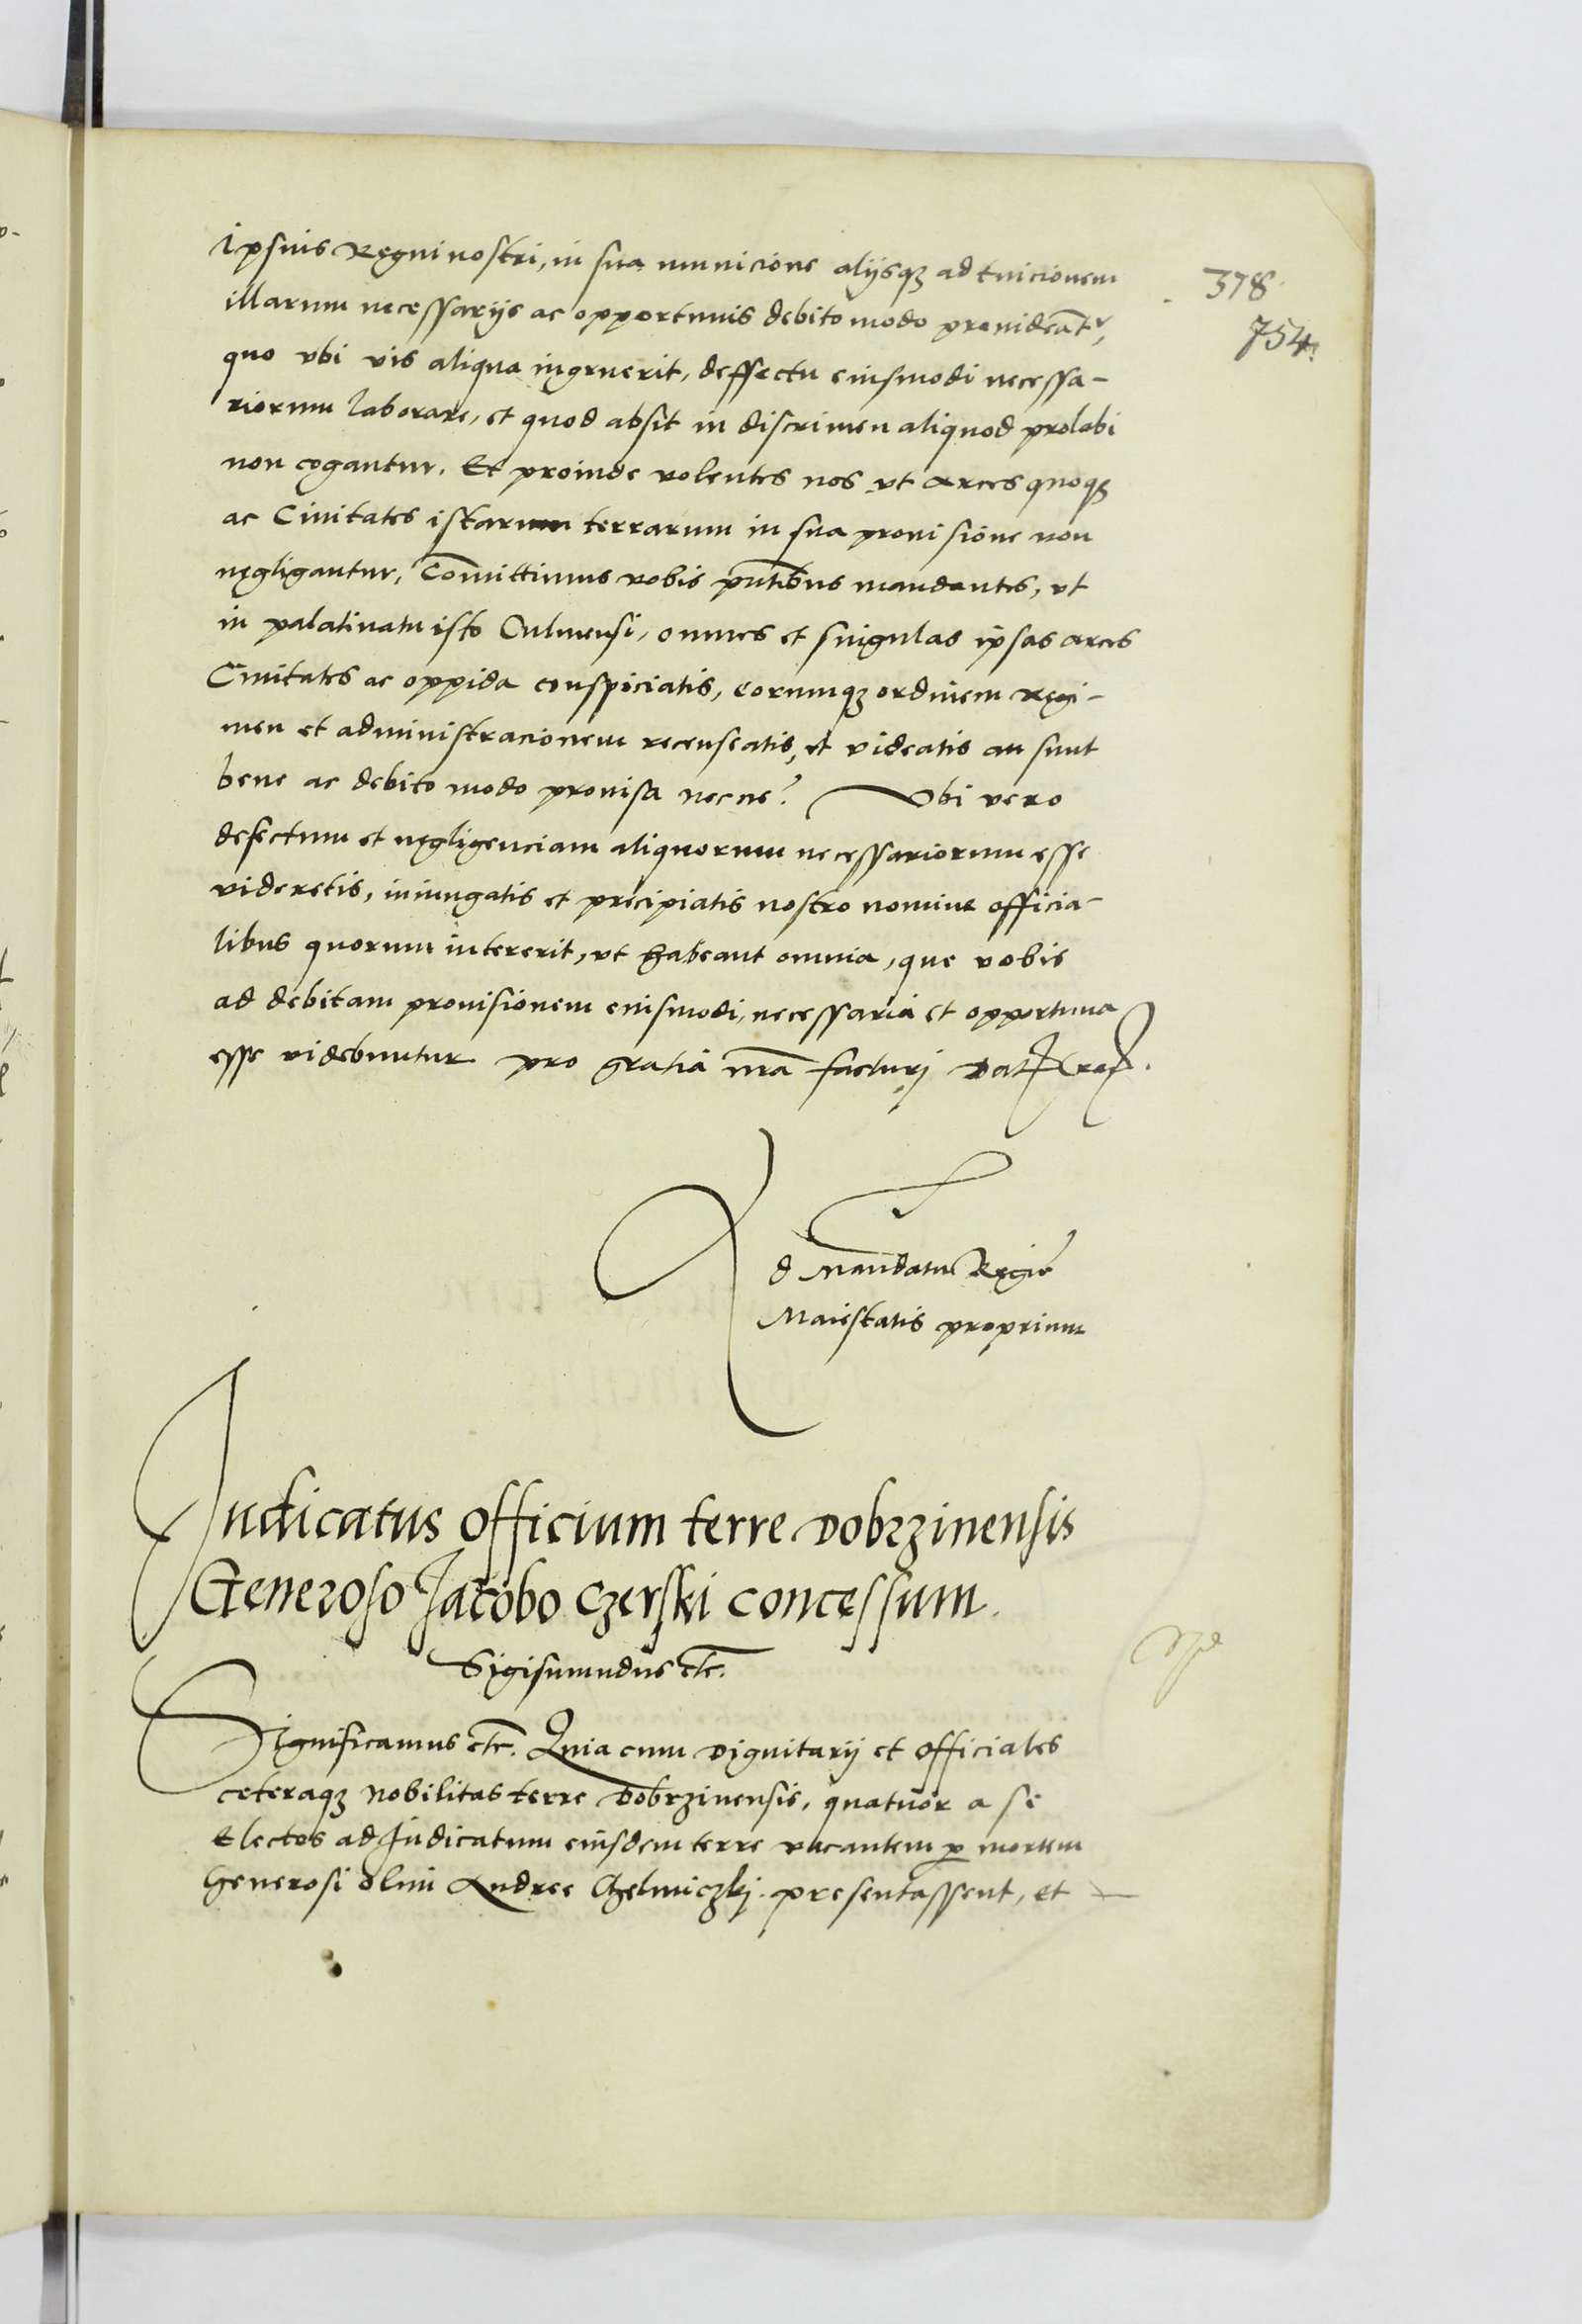 378
754
ipsius Regni nostri, in sua municione alijsq3 ad tuicionem
illarum necessarijs ac opportunis debito modo prouideāt͛,
quo vbi vis aliqua ingruerit, deffectu eiusmodi necessa-
riorum laborare, et quod absit in discrimen aliquod prolabi
non cogantur. Et proinde volentes nos vt arces quoq3
ac Ciuitates istarum terrarum in sua prouisione non
negligantur, Com̄ittimus vobis pn̄tibus mandantes, vt
in palatinatu isto Culmensi, omnes et singulas ipsas arces
Ciuitates ac oppida conspiciatis, eorumq3 ordinem regi-
men et administracionem recenseatis, et videatis an sunt
bene ac debito modo prouisa necne? Vbi vero
defectum et negligenciam aliquorum necessariorum esse
videretis, iniungatis et precipiatis nostro nomine officia-
libus quorum intererit, vt habeant omnia, que vobis
ad debitam prouisionem eiusmodi, necessaria et opportuna
esse videbuntur pro gratia nr̄a facturj Dat Crac.
Ad Mandatu Regie
Maiestatis proprium
Iudicatus officium terre Dobrzinensis
Generoso Jacobo Czerski concessum.
Sigismundus etc.
Significamus etc. Quia cum Dignitarij et officiales
ceteraq3 Nobilitas terre Dobrzinensis, quatuor a se
Electos ad Judicatum eiusdem terre vacantem p mortem
Generosi olim Andree Chelmiczkj presentassent, et